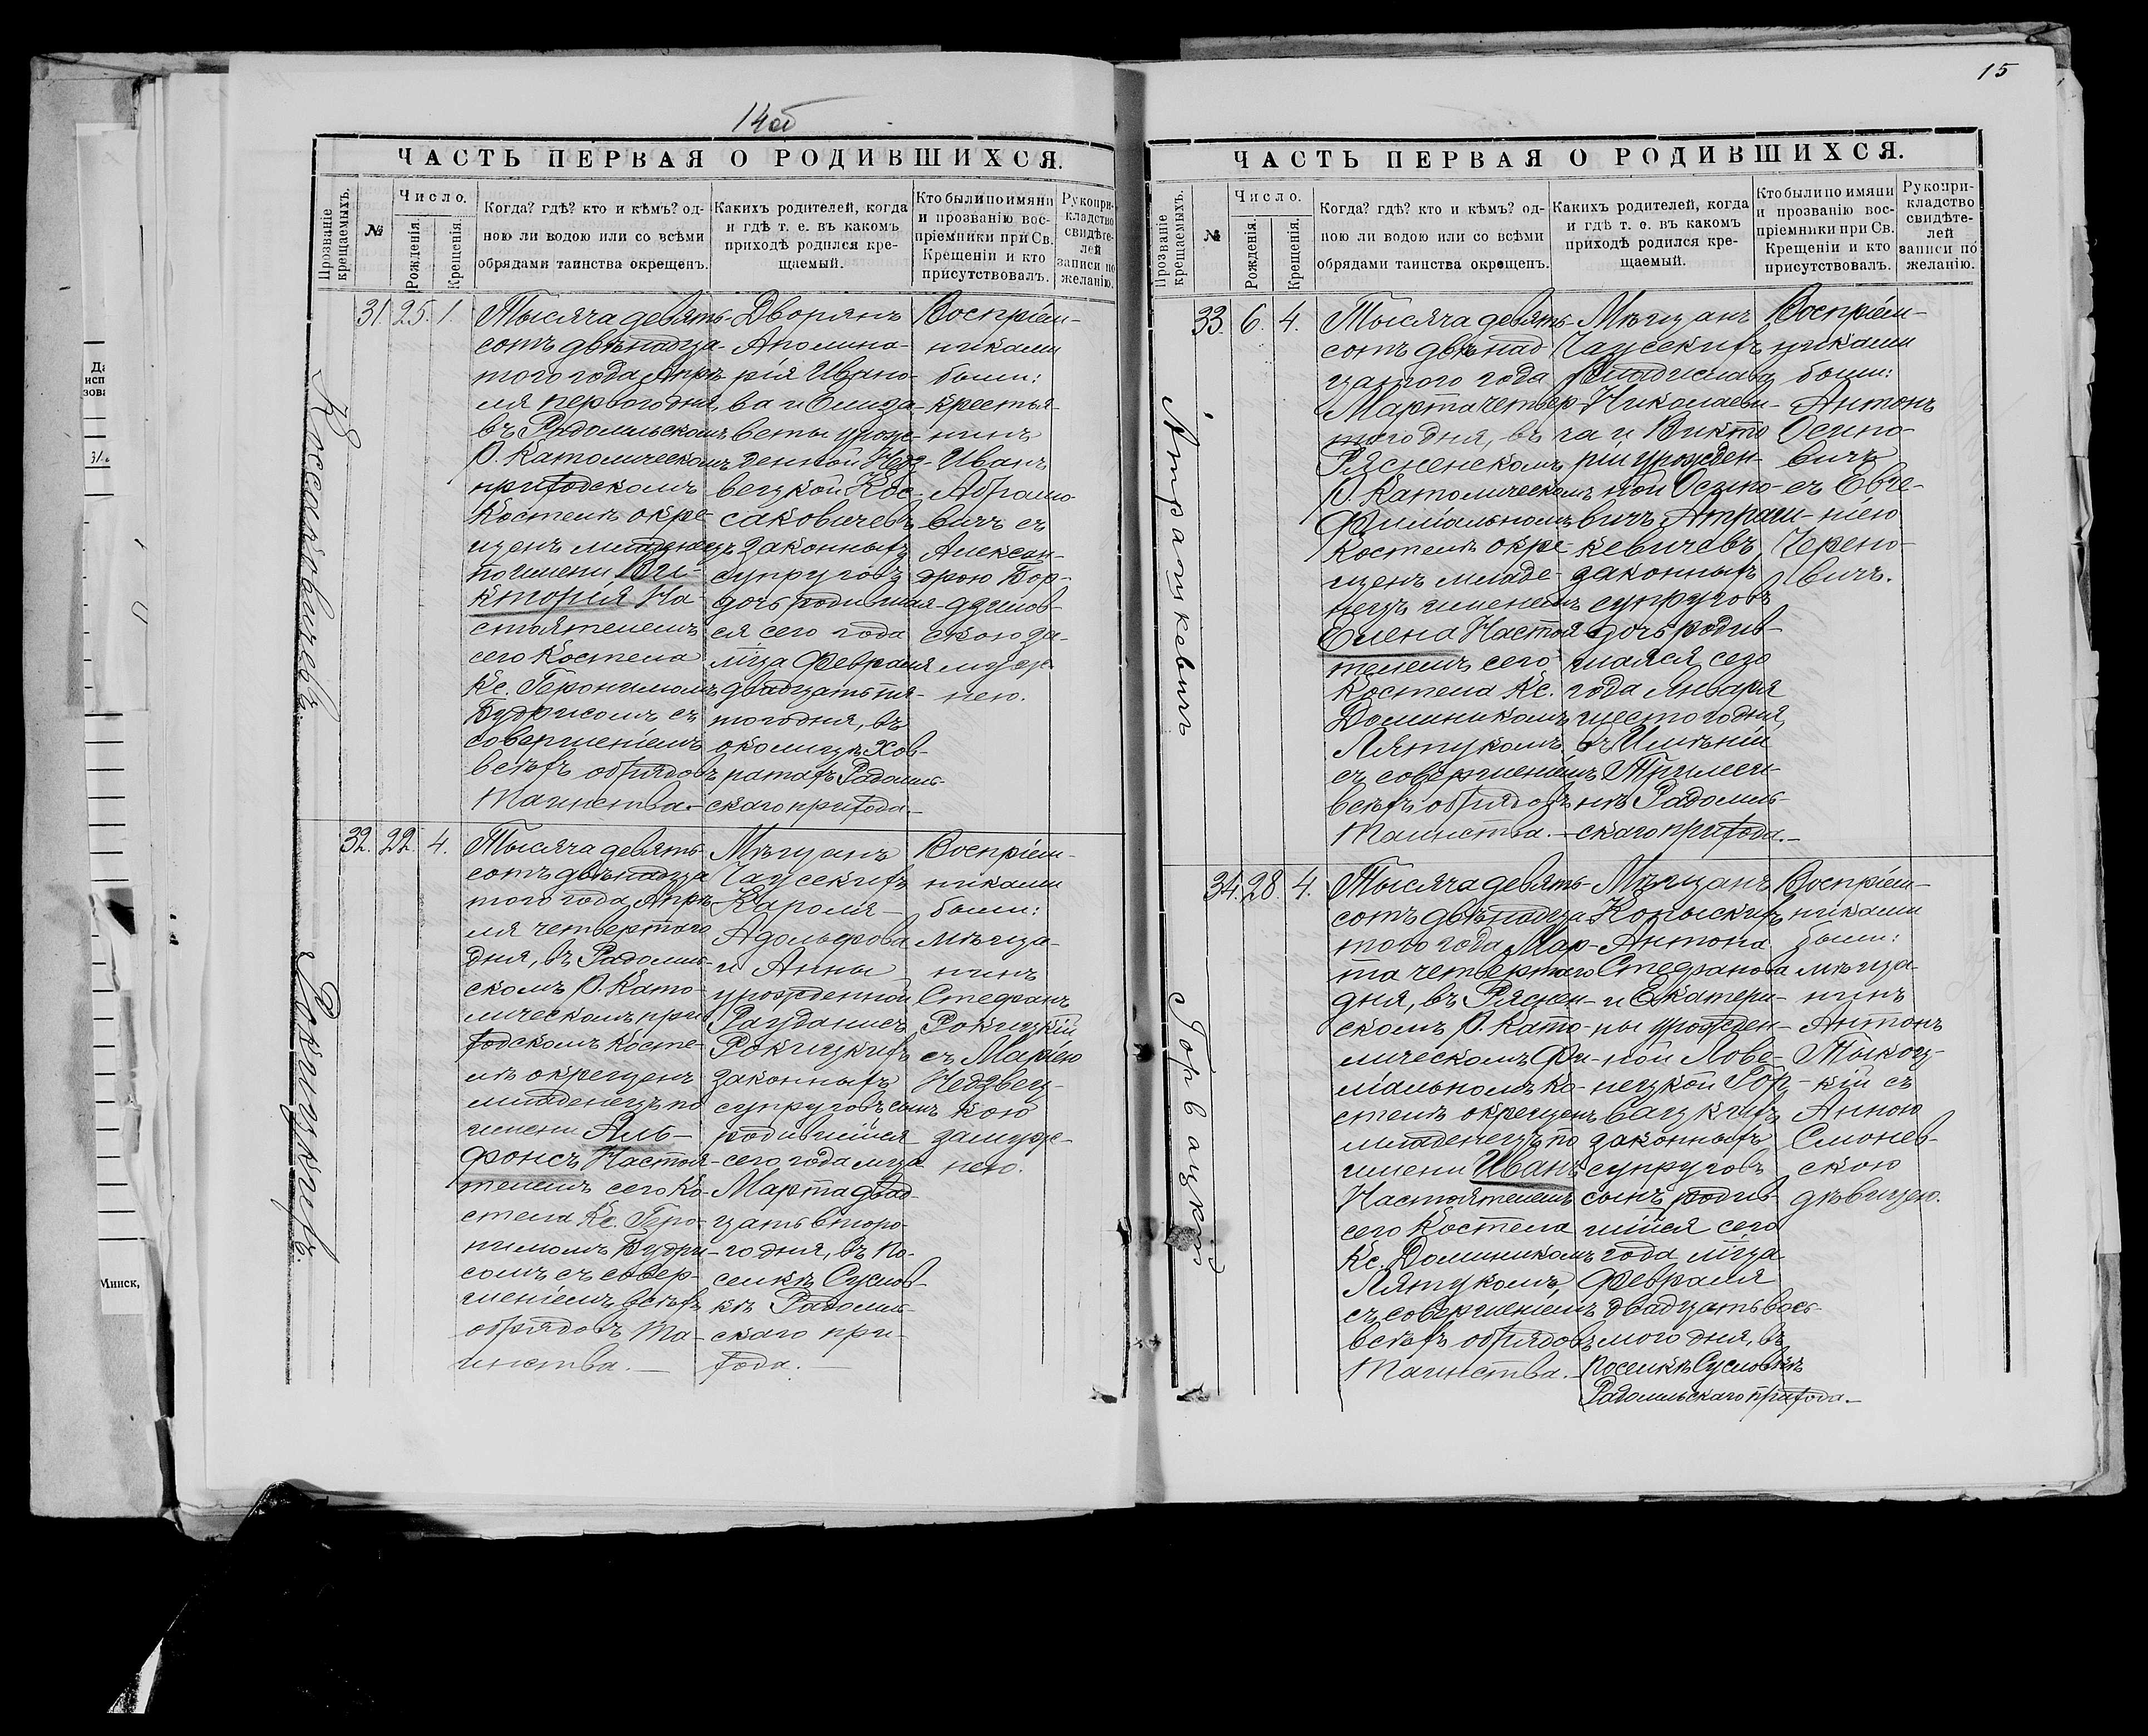 14об
ЧАСТЬ ПЕРВАЯ О РОДИВШИХСЯ.
Прозваніе крещаемыхъ.
№
Число.
Рожденія.
Крещенія.
Когда? гдѣ? кто и кѣмъ? од-
ною ли водою или со всѣми
обрядами таинства окрещенъ.
Какихъ родителей, когда
и гдѣ т. е. въ какомъ
приходѣ родился кре-
щаемый.
Кто были по имяни
и прозванію вос-
пріемники при Св.
Крещеніи и кто
присутствовалъ.
Рукопри-
кладство
свидѣте-
лей
записи по
желанію.
Коссаковичевъ.
31. 25. 1.
Тысяча девять-
сотъ двѣнадца-
того года Апрѣ
ля перваго дня,
въ Радомльскомъ
Р. Католическомъ
приходскомъ
Костелѣ окре-
щенъ младенецъ
по имени Ви-
кторія На-
стоятелемъ
сего Костела
Кс. Геронимомъ
Будрисомъ съ
совершеніемъ
всѣхъ обрядовъ
Таинства.-
Дворянъ
Аполина-
рія Ивано-
ва и Елиза-
веты урож-
денной Нед-
вецкой Кос-
саковичевъ
законныхъ
супруговъ
дочь родивша-
яся сего года
м-ца Февраля
двадцать пя-
того дня, въ
околицѣ Хов-
ратахъ Радомль-
скаго прихода.-
Воспріем-
никами
были:
крестья-
нинъ
Иванъ
Абрамо-
вичъ съ
Алексан-
дрою Бор-
дзилов-
скою за-
муж-
нею.
Рокицкихъ.
32. 22. 4.
Тысяча девять-
сотъ двѣнадца
того года Апрѣ-
ля четвертаго
дня, въ Радомль-
скомъ Р. Като-
лическомъ при
ходскомъ Косте-
лѣ окрещенъ
младенецъ по
имени Аль-
фонсъ Настоя-
телемъ сего Ко-
стела Кс. Геро-
нимомъ Будри-
сомъ съ совер-
шеніемъ всѣхъ
обрядовъ Та-
инства.-
Мѣщанъ
Чаусскихъ
Кароля
Адольфова
и Анны
урожденной
Рокицкихъ
законныхъ
супруговъ сынъ
родившійся
сего года м-ца
Марта двад-
цать второ-
го дня, въ По-
селкѣ Суслов-
кѣ Радомль-
скаго при-
хода.-
Воспріем-
никами
были:
мѣща-
нинъ
Стефанъ
Рокицкій
съ Маріею
Недзвец-
кою
замуж-
нею.
15
ЧАСТЬ ПЕРВАЯ О РОДИВШИХСЯ.
Прозваніе крещаемыхъ.
№
Число.
Рожденія.
Крещенія.
Когда? гдѣ? кто и кѣмъ? од-
ною ли водою или со всѣми
обрядами таинства окрещенъ.
Какихъ родителей, когда
и гдѣ т. е. въ какомъ
приходѣ родился кре-
щаемый.
Кто были по имяни
и прозванію вос-
пріемники при Св.
Крещеніи и кто
присутствовалъ.
Рукопри-
кладство
свидѣте-
лей
записи по
желанію.
Атрашкевичъ
33. 6. 4.
Тысяча девять-
сотъ двѣнад-
цатого года
Марта четвер-
таго дня, въ
Рясненскомъ
Р. Католическомъ
Филіальномъ
Костелѣ окре-
щенъ младе-
нецъ именемъ
Елена Настоя-
телемъ сего
Костела Кс.
Доминикомъ
Лятукомъ
съ совершеніемъ
всѣхъ обрядовъ
Таинства.-
Мѣщанъ
Чаусскихъ
Владислава
Николаеви-
ча и Викто
ріи урожден-
ной Осипо-
вичъ Атраш-
кевичевъ
законныхъ
супруговъ
дочь родив-
шаяся сего
года Января
шестого дня,
въ Имѣніи
Трилеси-
нѣ Радомль-
скаго прихода.-
Воспріем-
никами
были:
Антонъ
Осипо-
вичъ
съ Евге-
ніею
Черено-
вичъ.
Горвацкій
34. 28. 4.
Тысяча девять-
сотъ двѣнадца
того года Мар-
та четвертаго
дня, въ Ряснен-
скомъ Р. Като-
лическомъ Фи-
ліальномъ Ко-
стелѣ окрещенъ
младенецъ по
имени Иванъ
Настоятелемъ
сего Костела
Кс. Доминикомъ
Лятукомъ,
съ совершеніемъ
всѣхъ обрядовъ
Таинства.-
Мѣщанъ
Копыскихъ
Антона
Стефанова
и Екатери-
ны урожден-
ной Лове-
нецкой Гор-
вацкихъ
законныхъ
супруговъ
сынъ родив-
шійся сего
года м-ца
Февраля
двадцать вось-
мого дня, въ
Поселкѣ Сусловкѣ
Радомльскаго прихода.-
Воспріем-
никами
были:
мѣща-
нинъ
Антонъ
Тыкоц-
кій съ
Анною
Смонев-
скою
дѣвицею.
Минск,